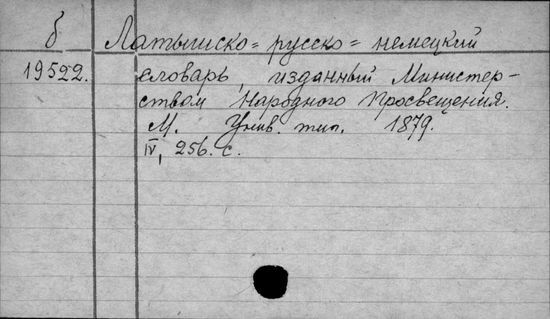 б Латышско-русско-немецкий
19522. словарь, изданный Министер-
ством Народного Просвещения.
М. Унив. тип. 1879.
IV, 256. с.